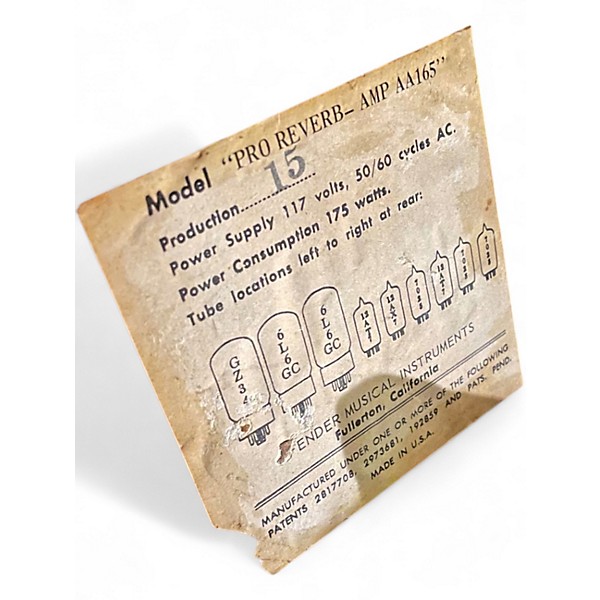 Model "PRO REVERB- AMP AA165"
Production............ 15
Power Supply 117 volts, 50/60 cycles AC.
Power Consumption 175 watts.
Tube locations left to right at rear:
GZ34 6L6GC 6L6GC 12AT7 7025 12AX7 7025 12AT7 7025 7025
FENDER MUSICAL INSTRUMENTS
Fullerton, California
MANUFACTURED UNDER ONE OR MORE OF THE FOLLOWING
PATENTS 2817708, 2973681, 192859 AND PATS. PEND.
MADE IN U.S.A.